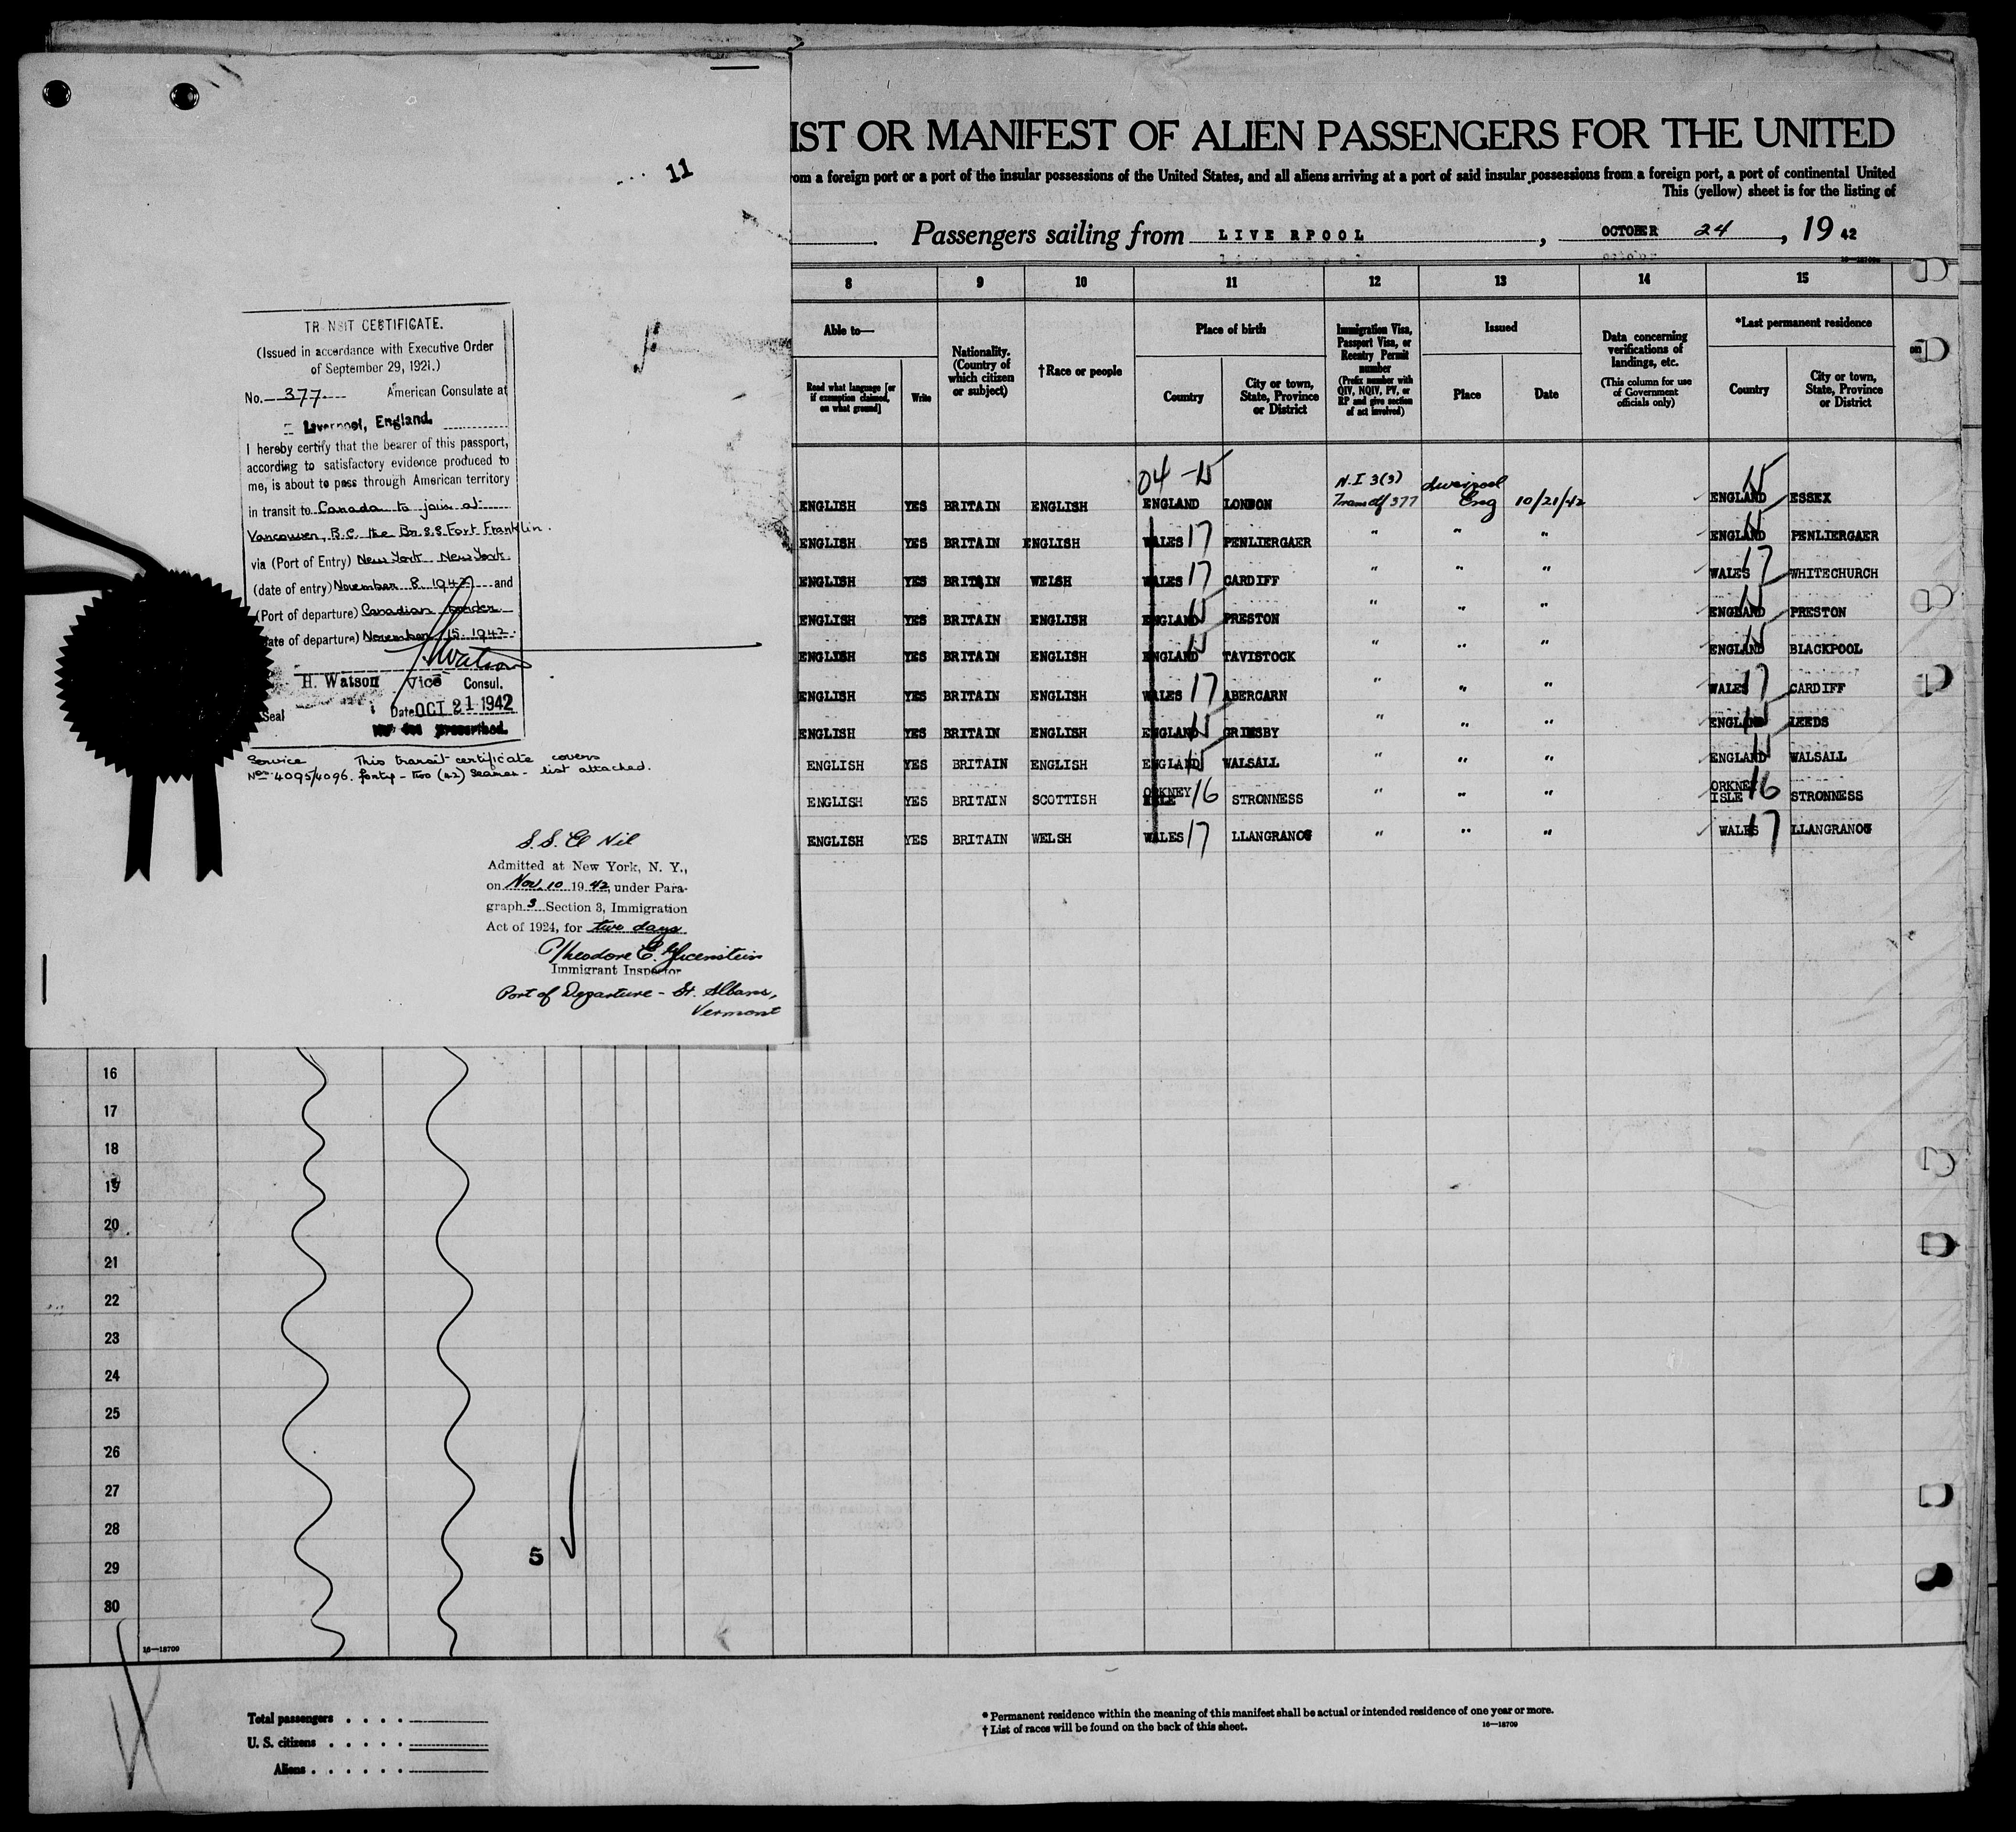 11
TRANSIT CERTIFICATE.
(Issued in accordance with Executive Order
of September 29, 1921.)
No. 377 American Consulate at
Liverpool, England.
I hereby certify that the bearer of this passport,
according to satisfactory evidence produced to
me, is about to pass through American territory
in transit to Canada to join at
Vancouver, B.C. the Br. S.S. Fort Franklin.
via (Port of Entry) New York New York
(date of entry) November 8 1942 and
(Port of departure) Canadian border
(date of departure) November 15. 1942.
H Watson
H. Watson Vice Consul.
Seal Date OCT 21 1942
No fee prescribed.
Service This transit certificate covers
Nos. 4095/4096. forty-two (42) Seamen - list attached.
S.S. El Nil
Admitted at New York, N. Y.,
on Nov. 10 1942, under Para-
graph 3 Section 3, Immigration
Act of 1924, for two days
Theodore E.
Immigrant Inspector
Port of Departure - St. Albans,
Vermont
IST OR MANIFEST OF ALIEN PASSENGERS FOR THE UNITED
rom a foreign port or a port of the insular possessions of the United States, and all aliens arriving at a port of said insular possessions from a foreign port, a port of continental United
This (yellow) sheet is for the listing of
Passengers sailing from LIVERPOOL, OCTOBER 24, 19 42
16—18709a
8 9 10 11 12 13 14 15
Able to— Read what language [or if exemption claimed, on what ground] Write
Nationality. (Country of which citizen or subject)
†Race or people
Place of birth Country City or town, State, Province or District
Immigration Visa, Passport Visa, or Reentry Permit number (Prefix number with QIV, NQIV, PV, or RP and give section of act involved)
Issued Place Date
Data concerning verifications of landings, etc. (This column for use of Government officials only)
*Last permanent residence Country City or town, State, Province or District
04 - 15 N.I 3(3) Liverpool 15
ENGLISH YES BRITAIN ENGLISH ENGLAND LONDON Trans Ctf 377 Eng 10/21/42 ENGLAND ESSEX
ENGLISH YES BRITAIN ENGLISH WALES 17 PENLIERGAER " " " ENGLAND 15 PENLIERGAER
ENGLISH YES BRITAIN WELSH WALES 17 CARDIFF " " " WALES 17 WHITECHURCH
ENGLISH YES BRITAIN ENGLISH ENGLAND 15 PRESTON " " " ENGLAND 15 PRESTON
ENGLISH YES BRITAIN ENGLISH ENGLAND 15 TAVISTOCK " " " ENGLAND 15 BLACKPOOL
ENGLISH YES BRITAIN ENGLISH WALES 17 ABERCARN " " " WALES 17 CARDIFF
ENGLISH YES BRITAIN ENGLISH ENGLAND 15 GRIMSBY " " " ENGLAND 15 LEEDS
ENGLISH YES BRITAIN ENGLISH ENGLAND 15 WALSALL " " " ENGLAND 15 WALSALL
ENGLISH YES BRITAIN SCOTTISH ORKNEY ISLE 16 STRONNESS " " " ORKNEY ISLE 16 STRONNESS
ENGLISH YES BRITAIN WELSH WALES 17 LLANGRANOG " " " WALES 17 LLANGRANOG
16
17
18
19
20
21
22
23
24
25
26
27
28
5
29
30
16—18709
Total passengers
U. S. citizens
Aliens
* Permanent residence within the meaning of this manifest shall be actual or intended residence of one year or more.
† List of races will be found on the back of this sheet. 16—18709